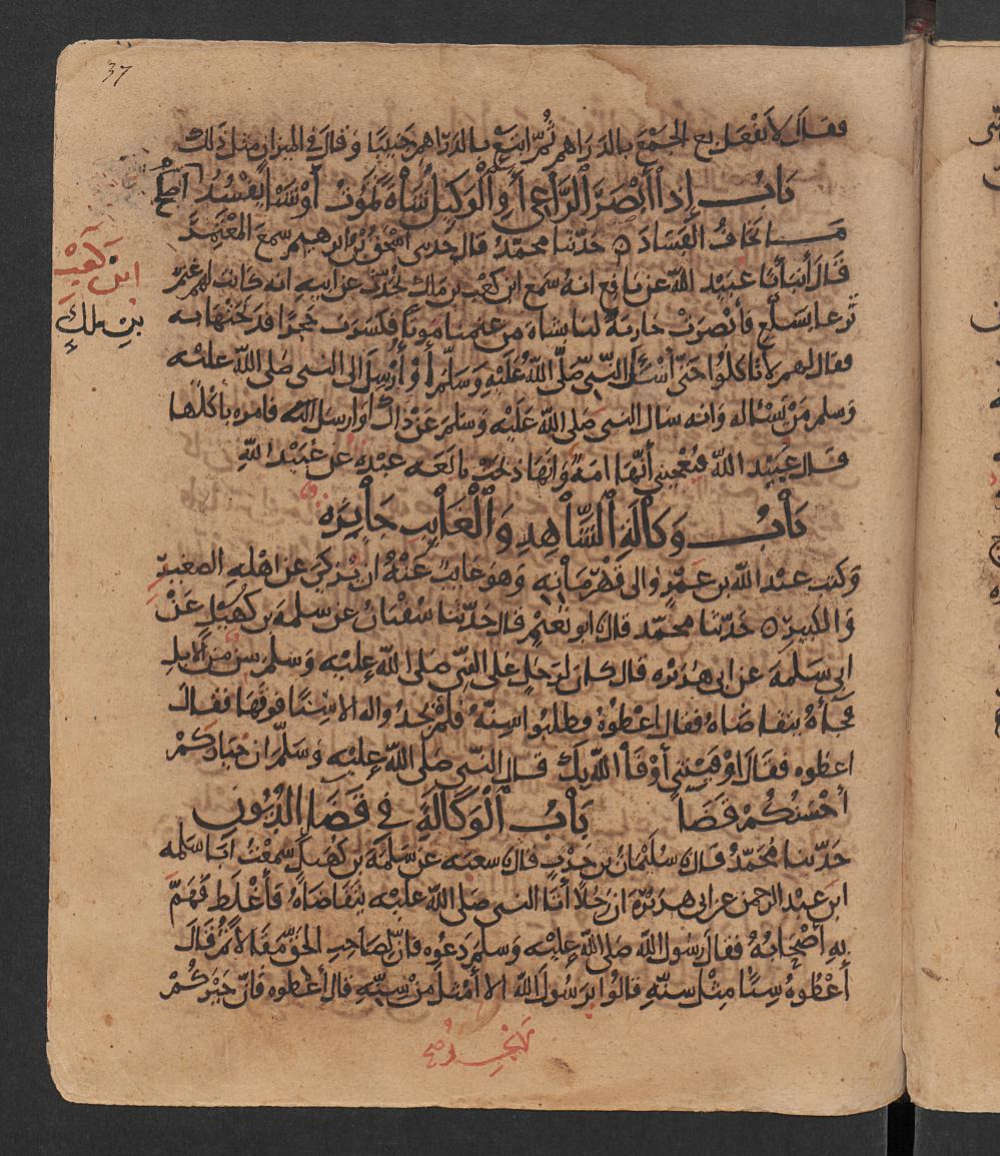 37
فقال لا تفعل بع الجمع بالدراهم ثم ابتع بالدراهم جنيبا وقال في الميزان مثل ذلك
باب إذا أبصر الراعي أو الوكيل شاة تموت أو شيأ يفسد أصلح
ما يخاف الفساد ه حدثنا محمد قال حدثني اسحق بن ابرهيم سمع المعتمر
قال أنبأنا عبيد الله عن نافع انه سمع ابن كعب بن مالك يحدث عن ابيه انه كانت لهم غنم
ابن كعب
بن ملك
ترعا بسلع فأبصرت جارية لنا بشاة من غنمنا موتا فكسرت حجرا فذبحتها به
فقال لهم لا تاكلوا حتى أسئل النبي صلى الله عليه وسلم أو أرسل الى النبي صلى الله عليه
وسلم من يسئاله وانه سال النبي صلى الله عليه وسلم عن ذاك او ارسل اليه فامره باكلها
قال عبيد الله فيعجبني أنها امة وانها ذبحت تابعه عبدة عن عبيد الله
باب وكالة الشاهد والغايب جايزه
وكتب عبد الله بن عمرو الى قهرمانه وهو غايب عنه ان يزكي عن اهله الصغير
والكبير ه حدثنا محمد قال ابو نعيم قال حدثنا سفيان عن سلمة بن كهيل عن
ابي سلمة عن ابي هريره قال كان لرجل على النبي صلى الله عليه وسلم سن من الابل
فجأه يتقاضاه فقال اعطوه فطلبوا سنه فلم يجدوا له الا سنا فوقها فقال
اعطوه فقال اوفيتني أوفا الله بك قال النبي صلى الله عليه وسلم ان خياركم
أحسنكم قضا باب الوكالة في قضا الديون
حدثنا محمد قال سليمان بن حرب قال شعبه عن سلمة بن كهيل سمعت ابا سلمه
ابن عبد الرحمن عن ابي هريرة ان رجلا أتا النبي صلى الله عليه يتقاضاه فأغلظ فهم
به أصحابه فقال رسول الله صلى الله عليه وسلم دعوه فان لصاحب الحق مقالا ثم قال
أعطوه سنا مثل سنه قالوا يرسول الله الا أمثل من سنه قال أعطوه فان خيركم